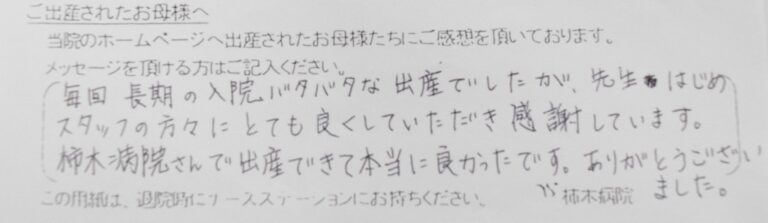 ご出産されたお母様へ
当院のホームページへ出産されたお母様たちにご感想を頂いております。
メッセージを頂ける方はご記入ください。
毎回 長期の入院バタバタな出産でしたが、先生はじめ
スタッフの方々にとても良くしていただき感謝しています。
柿木病院さんで出産できて本当に良かったです。ありがとうござい
ました。
この用紙は、退院時にナースステーションにお持ちください。 柿木病院